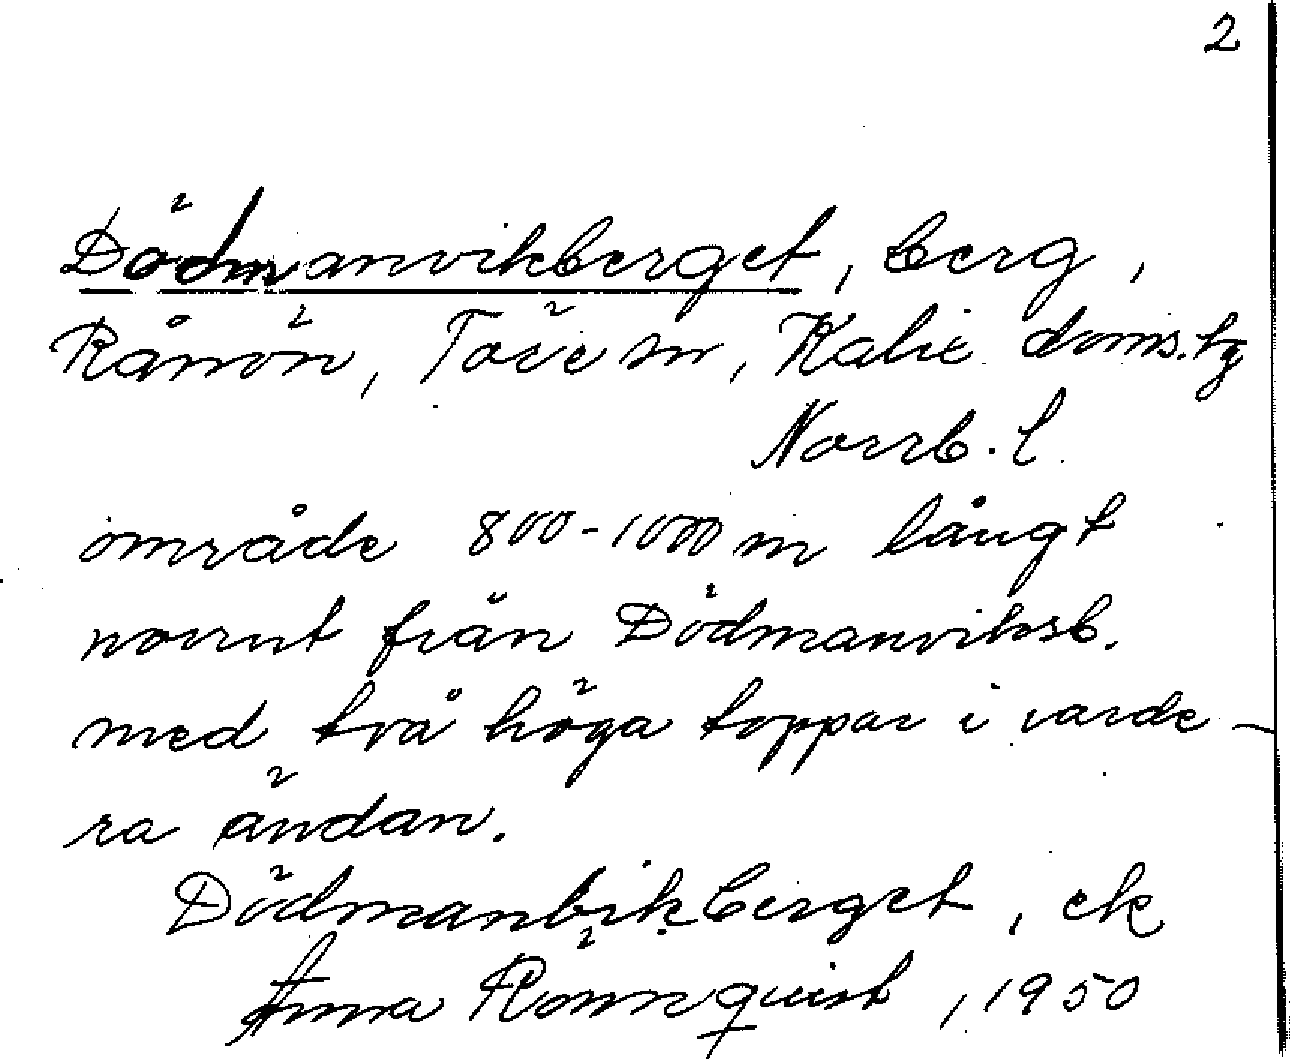 2
Dödmanvikberget, berg,
Rånön, Töre sn, Kalix doms.tg
Norrb. l.
område 800-1000 m långt
norrut från Dödmanviksb.
med två höga toppar i varde-
ra ändan.
Dödmanvikberget, ek
Anna Rönnquist, 1950